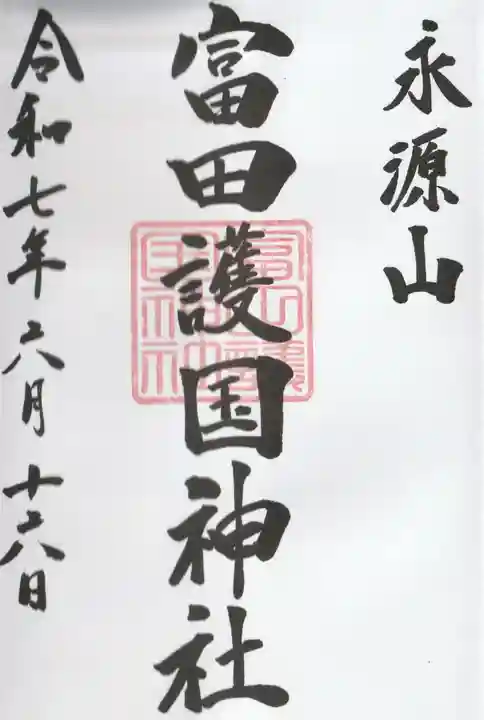 永源山
富田護国神社
令和七年六月十六日